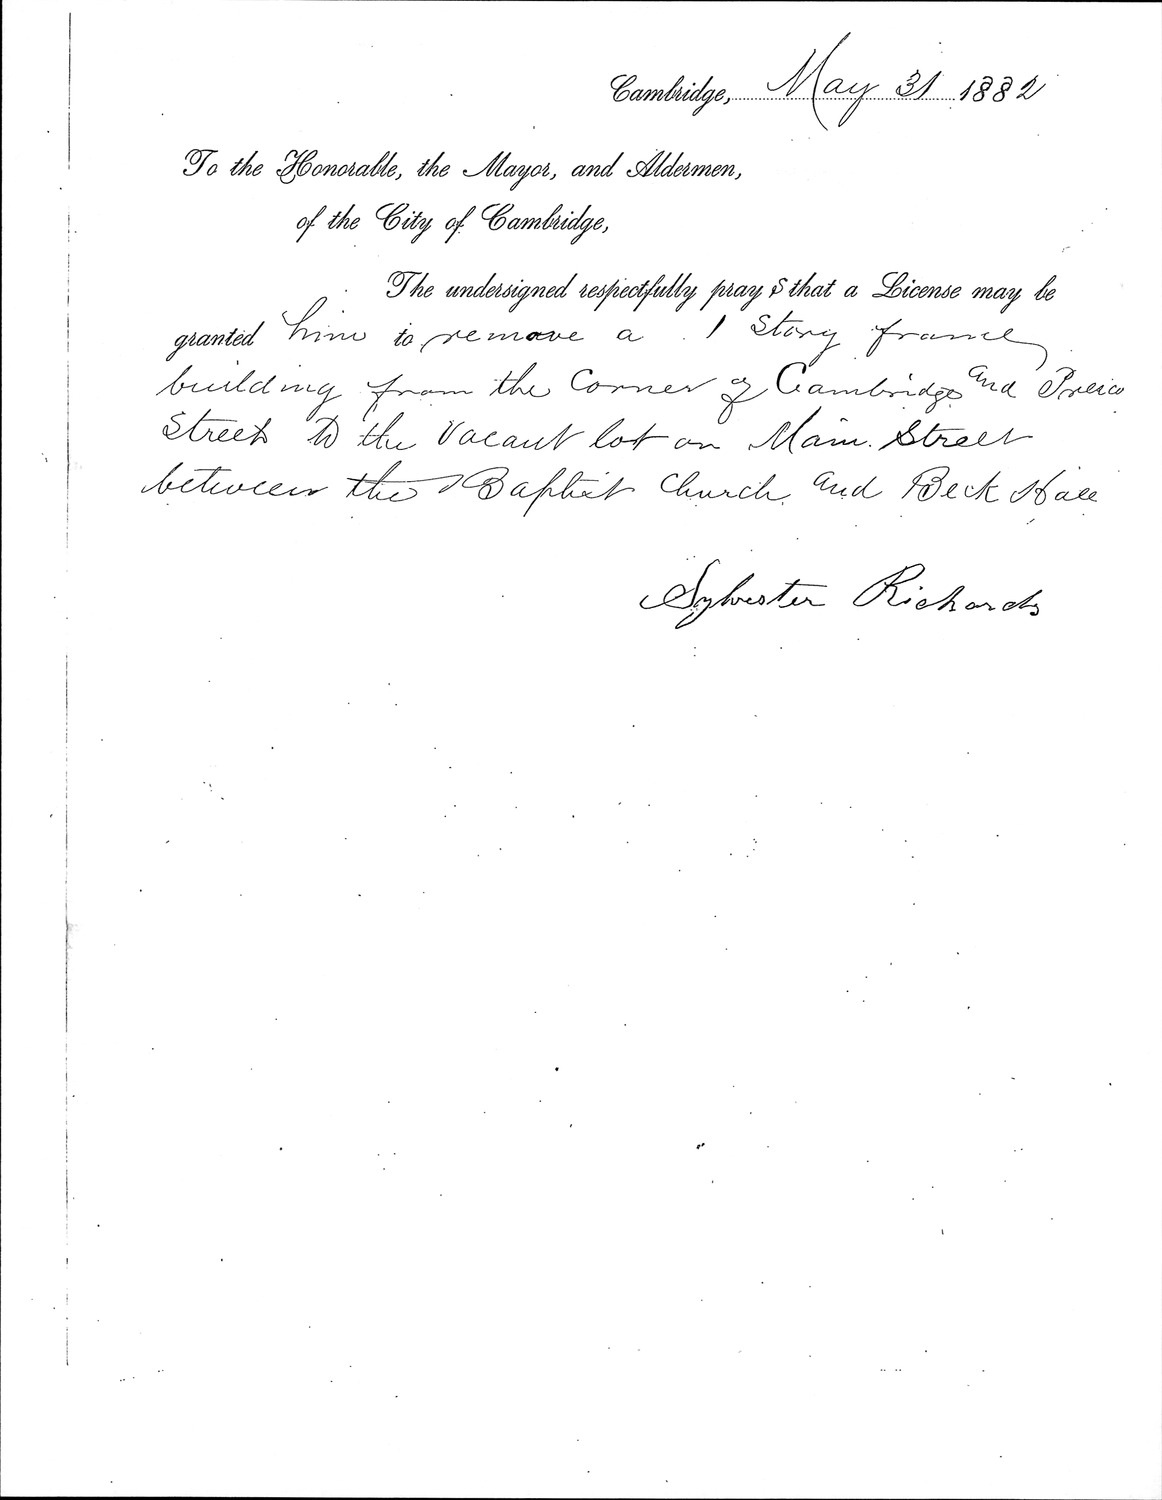 Cambridge, May 31 1882
To the Honorable, the Mayor, and Aldermen,
of the City of Cambridge,
The undersigned respectfully pray s that a License may be
granted him to remove a 1 Story frame
building from the Corner of Cambridge and
Streets to the Vacant lot on Main Street
between the Baptist Church and Beck Hall
Sylvester Richards